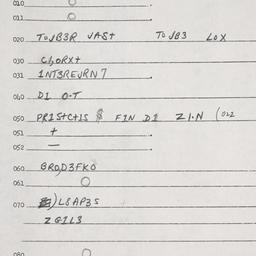 010
011
020 TOJB3R JAST TO JB3 LOX
030 C1,ORX+
031 1NT3REJRN7
040 D1 O.T
050 PR1S+C+1S $ FIN D1 Z1.N (022
051 +
052 —
060 GRO,D3FKO
061
070 )LSAP3S
Z G1LS
080